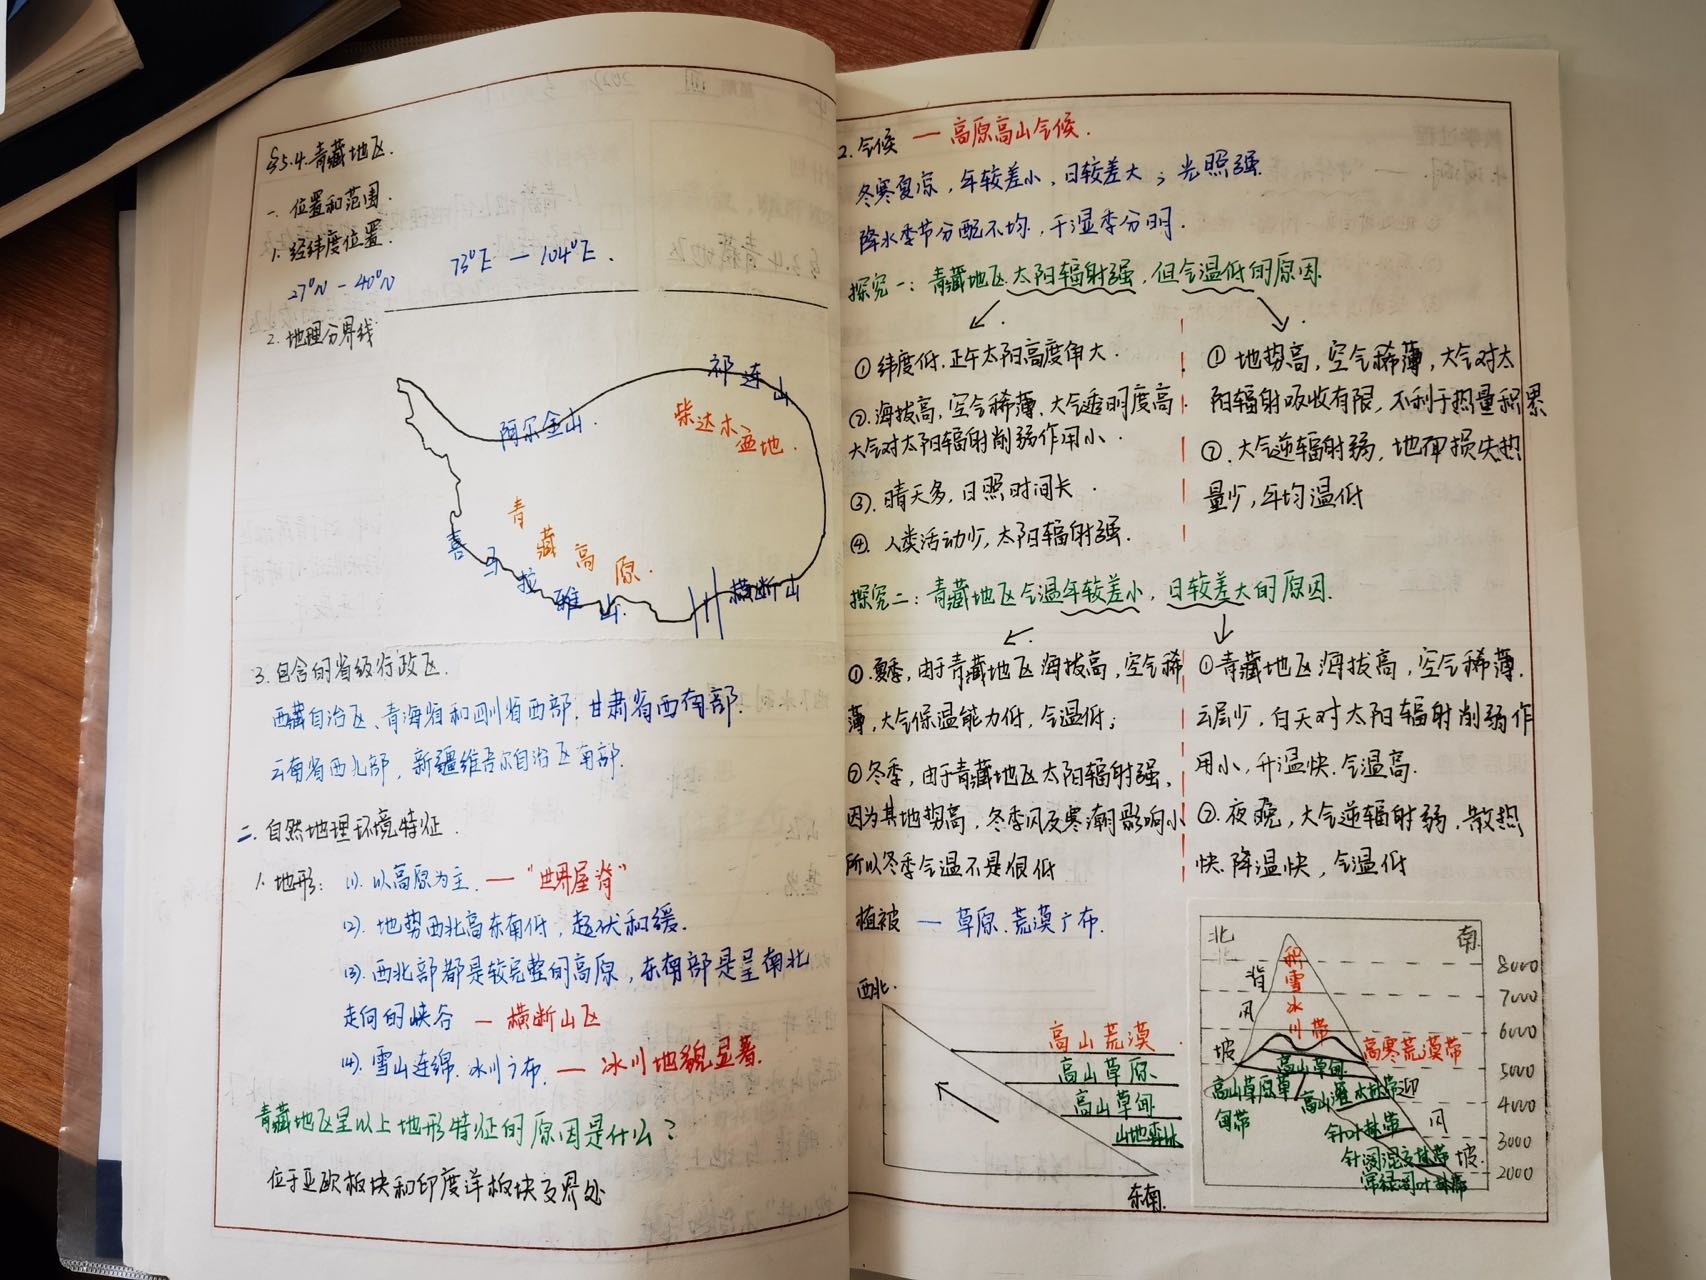 §5.4.青藏地区.
一、位置和范围.
1.经纬度位置.
27°N-40°N 73°E-104°E.
2.地理分界线
祁连山
阿尔金山.
柴达木盆地.
青藏高原.
喜马拉雅山.
横断山
3.包含的省级行政区.
西藏自治区、青海省和四川省西部,甘肃省西南部.
云南省西北部,新疆维吾尔自治区南部.
二.自然地理环境特征.
1.地形:(1).以高原为主.—"世界屋脊"
(2).地势西北高东南低,起伏和缓.
(3).西北部都是较完整的高原,东南部是呈南北
走向的峡谷—横断山区
(4).雪山连绵.冰川广布.—冰川地貌显著.
青藏地区呈以上地形特征的原因是什么?
位于亚欧板块和印度洋板块交界处
2.气候—高原高山气候.
冬寒夏凉,年较差小,日较差大;光照强.
降水季节分配不均,干湿季分明.
探究一:青藏地区太阳辐射强,但气温低的原因.
①纬度低,正午太阳高度角大.
②.海拔高,空气稀薄、大气透明度高
大气对太阳辐射削弱作用小.
③.晴天多,日照时间长.
④.人类活动少,太阳辐射强.
①地势高,空气稀薄,大气对太
阳辐射吸收有限,不利于热量积累
②.大气逆辐射弱,地面损失热
量少,年均温低
探究二:青藏地区气温年较差小,日较差大的原因.
①.夏季,由于青藏地区海拔高,空气稀
薄,大气保温能力低,气温低;
②冬季,由于青藏地区太阳辐射强,
因为其地势高,冬季风及寒潮影响小
所以冬季气温不是很低
①青藏地区海拔高,空气稀薄.
云层少,白天对太阳辐射削弱作
用小,升温快.气温高.
②.夜晚,大气逆辐射弱,散热
快.降温快,气温低
植被—草原.荒漠广布.
西北.
高山荒漠.
高山草原.
高山草甸
山地森林
东南.
北
北
南
背风坡
积雪冰川带
高寒荒漠带
高山草甸
高山草原草甸带
高山灌木林带
迎风坡
针叶林带
针阔混交林带
常绿阔叶林带
8000
7000
6000
5000
4000
3000
2000